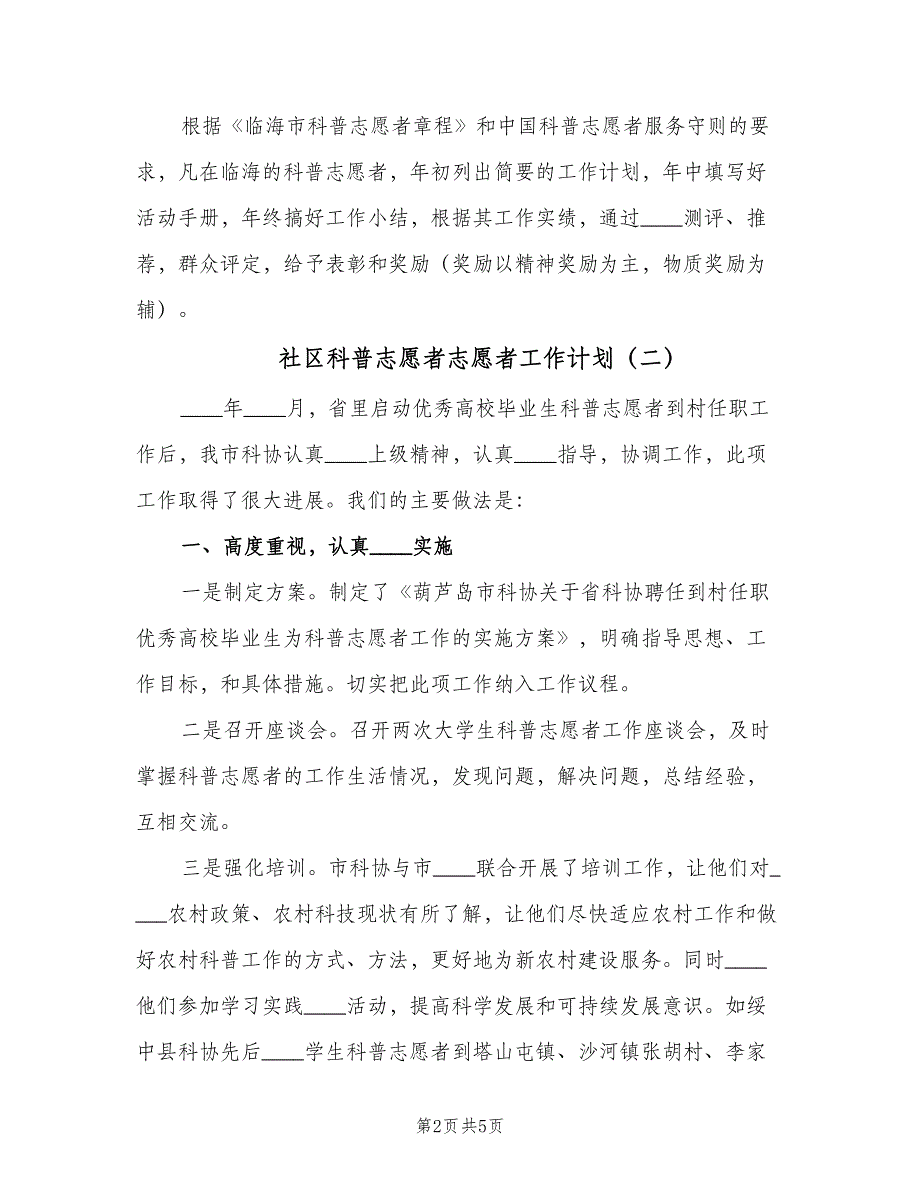 根据《临海市科普志愿者章程》和中国科普志愿者服务守则的要
求，凡在临海的科普志愿者，年初列出简要的工作计划，年中填写好
活动手册，年终搞好工作小结，根据其工作实绩，通过____测评、推
荐，群众评定，给予表彰和奖励（奖励以精神奖励为主，物质奖励为
辅）。
社区科普志愿者志愿者工作计划（二）
____年____月，省里启动优秀高校毕业生科普志愿者到村任职工
作后，我市科协认真____上级精神，认真____指导，协调工作，此项
工作取得了很大进展。我们的主要做法是：
一、高度重视，认真____实施
一是制定方案。制定了《葫芦岛市科协关于省科协聘任到村任职
优秀高校毕业生为科普志愿者工作的实施方案》，明确指导思想、工
作目标，和具体措施。切实把此项工作纳入工作议程。
二是召开座谈会。召开两次大学生科普志愿者工作座谈会，及时
掌握科普志愿者的工作生活情况，发现问题，解决问题，总结经验，
互相交流。
三是强化培训。市科协与市____联合开展了培训工作，让他们对_
___农村政策、农村科技现状有所了解，让他们尽快适应农村工作和做
好农村科普工作的方式、方法，更好地为新农村建设服务。同时____
他们参加学习实践____活动，提高科学发展和可持续发展意识。如绥
中县科协先后____学生科普志愿者到塔山屯镇、沙河镇张胡村、李家
第2页共5页